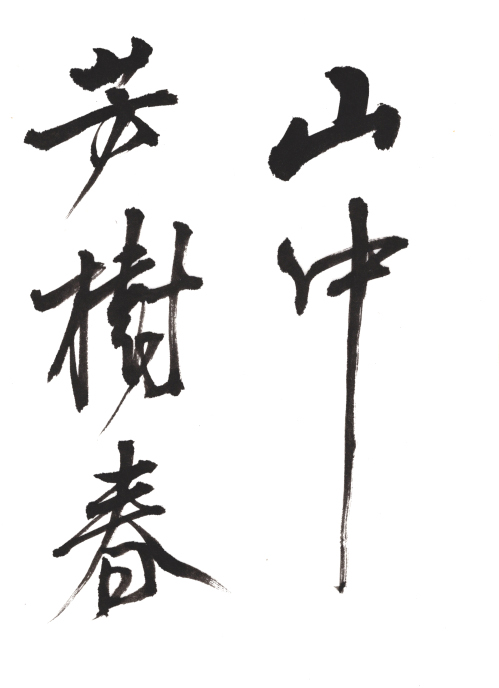 山中
芳樹春